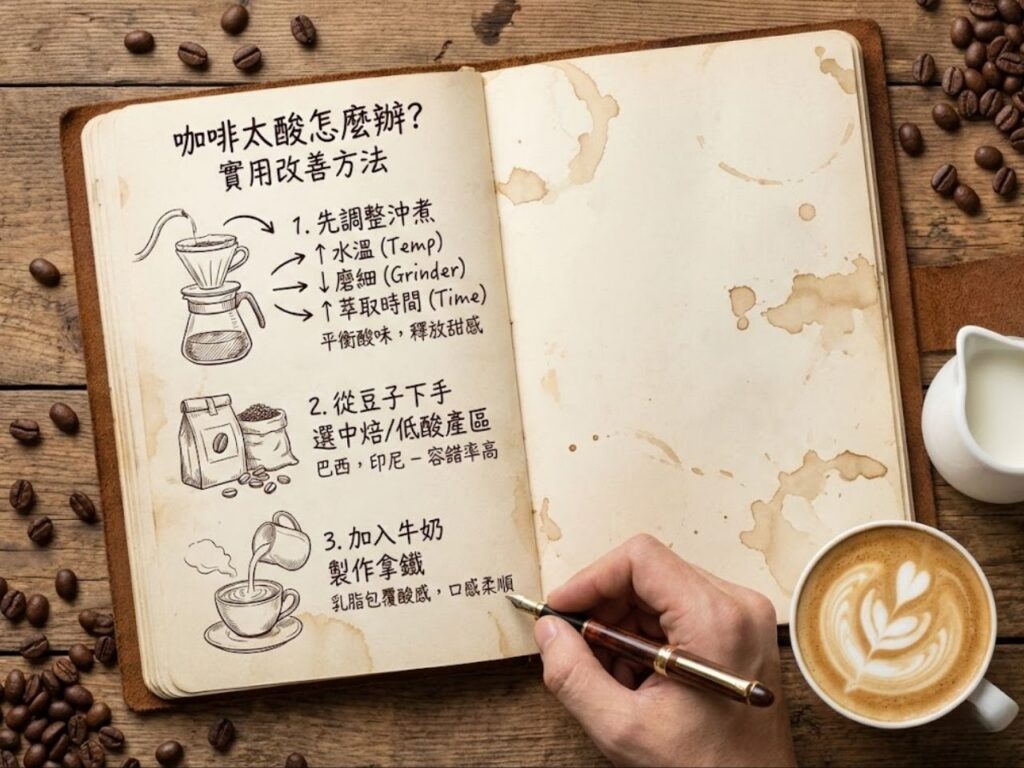 咖啡太酸怎麼辦?
實用改善方法
1. 先調整沖煮
↑ 水溫 (Temp)
↓ 磨細 (Grinder)
↑ 萃取時間 (Time)
平衡酸味，釋放甜感
2. 從豆子下手
選中焙/低酸產區
巴西，印尼 – 容錯率高
3. 加入牛奶
製作拿鐵
乳脂包覆酸感，口感柔順